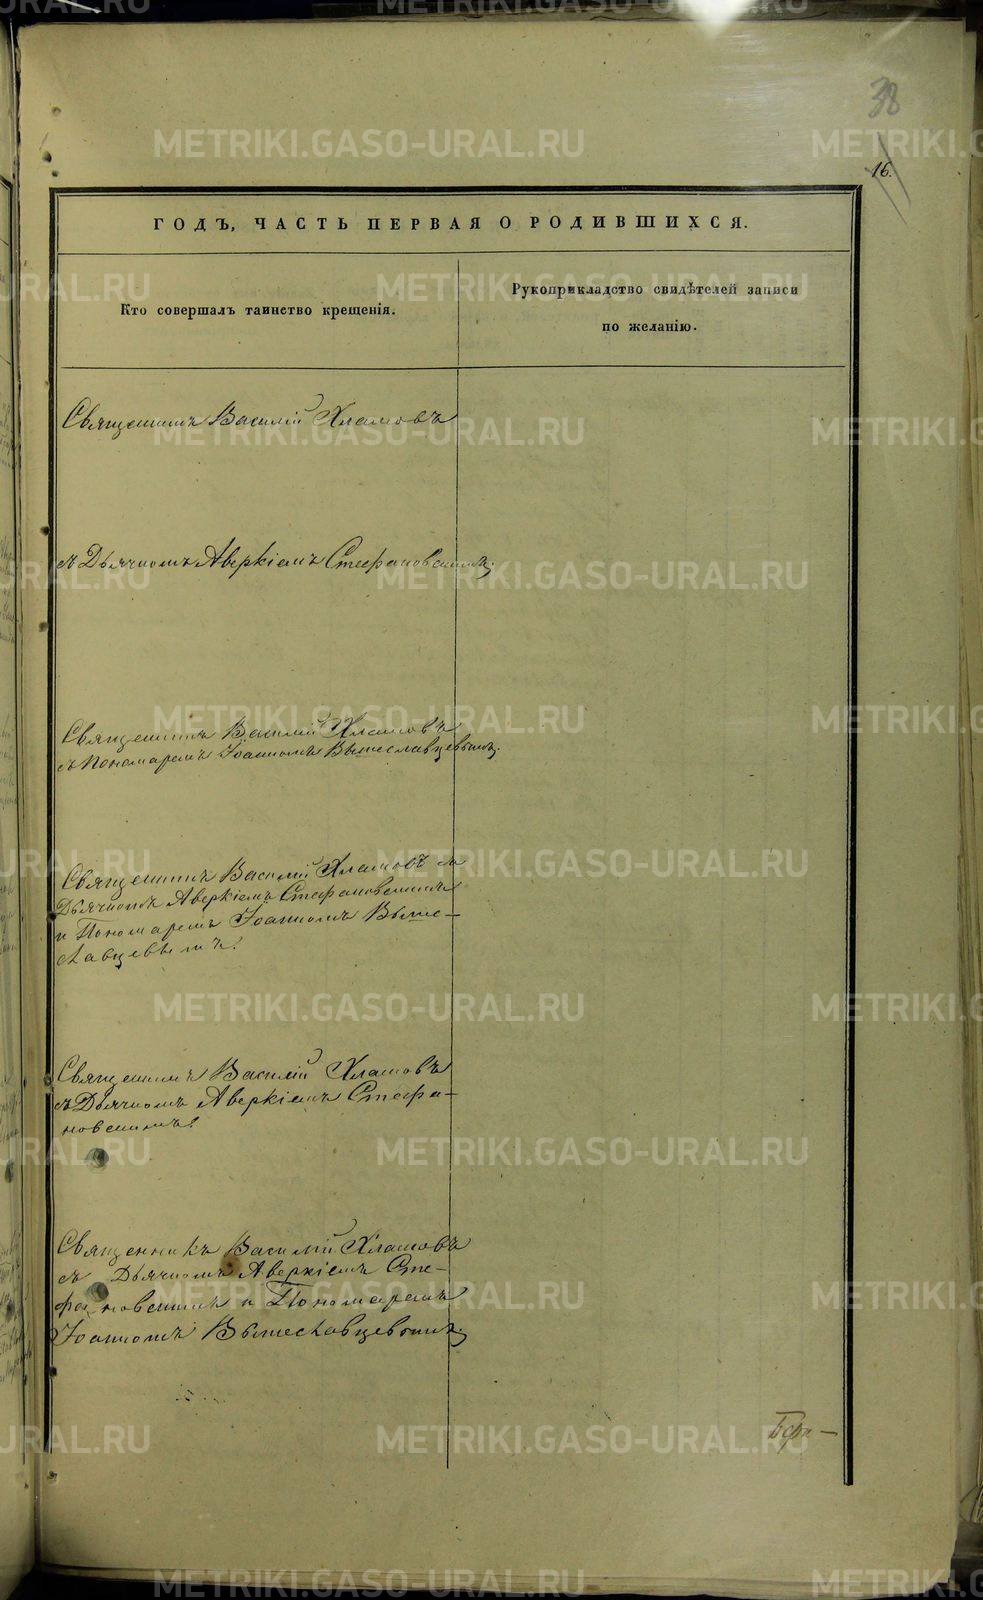 38
16.
ГОДЪ, ЧАСТЬ ПЕРВАЯ О РОДИВШИХСЯ.
Кто совершалъ таинство крещенія.
Рукоприкладство свидѣтелей записи
по желанію.
Священникъ Василій Хламовъ
съ Дьячкомъ Аверкіемъ Стефановскимъ.
Священникъ Василій Хламовъ
съ Пономаремъ Іоанномъ Вышеславцевымъ.
Священникъ Василій Хламовъ съ
Дьячкомъ Аверкіемъ Стефановскимъ
и Пономаремъ Іоанномъ Выше-
славцевымъ.
Священникъ Василій Хламовъ
съ Дьячкомъ Аверкіемъ Стефа-
новскимъ.
Священникъ Василій Хламовъ
съ Дьячкомъ Аверкіемъ Сте-
фановскимъ и Пономаремъ
Іоанномъ Вышеславцевымъ.
METRIKI.GASO-URAL.RU